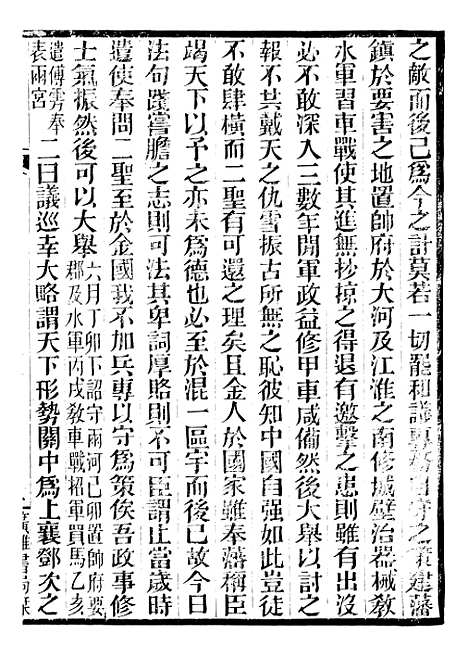 之敵而後已爲今之計莫若一切罷和議專務自守之策建藩
鎮於要害之地置帥府於大河及江淮之南修城壁治器械敎
水軍習車戰使其進無抄掠之得退有邀擊之患則雖有出沒
必不敢深入三數年閒軍政益修甲車咸備然後大舉以討之
報不共戴天之仇雪振古所無之恥彼知中國自強如此豈徒
不敢肆橫而二聖有可還之理矣且金人於國家雖奉藩稱臣
竭天下以予之亦未爲德也必至於混一區宇而後已故今日
法句踐嘗膽之志則可法其卑詞厚賂則不可臣謂止當歲時
遣使奉問二聖至於金國我不加兵專以守爲策俟吾政事修
士氣振然後可以大舉六月丁卯下詔守兩河己卯置帥府要郡及水軍丙戌敎車戰招軍買馬乙亥
遣傅雱奉表兩宮二曰議巡幸大略謂天下形勢關中爲上襄鄧次之
廣雅書局栞